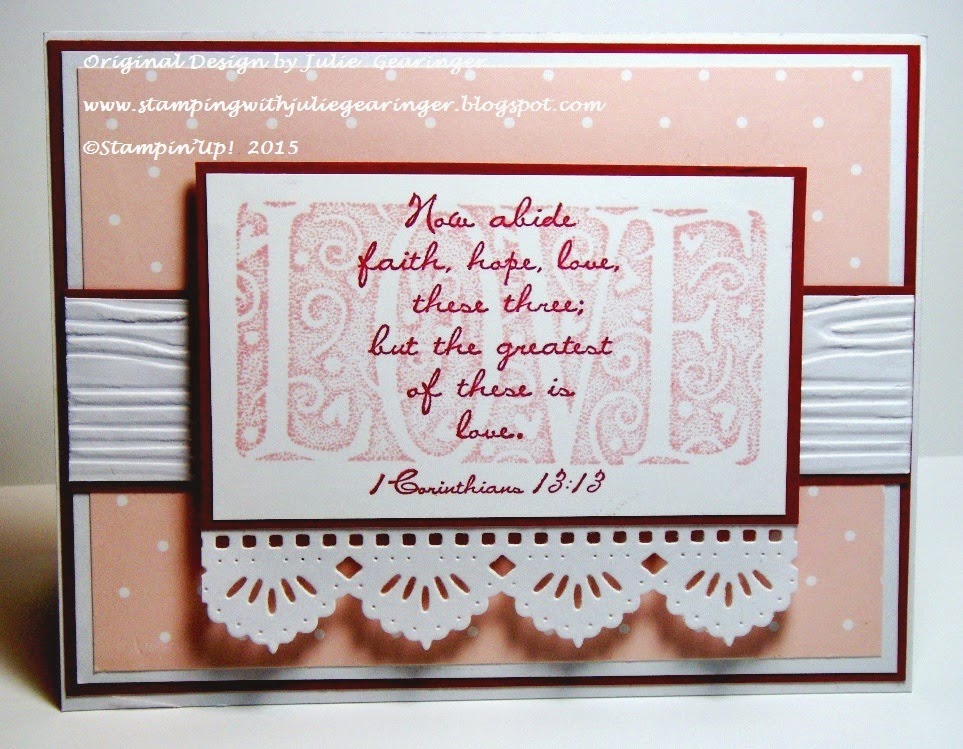 Original Design by Julie Gearinger
www.stampingwithjuliegearinger.blogspot.com
©Stampin'Up! 2015
LOVE
Now abide
faith, hope, love,
these three;
but the greatest
of these is
love.
1 Corinthians 13:13